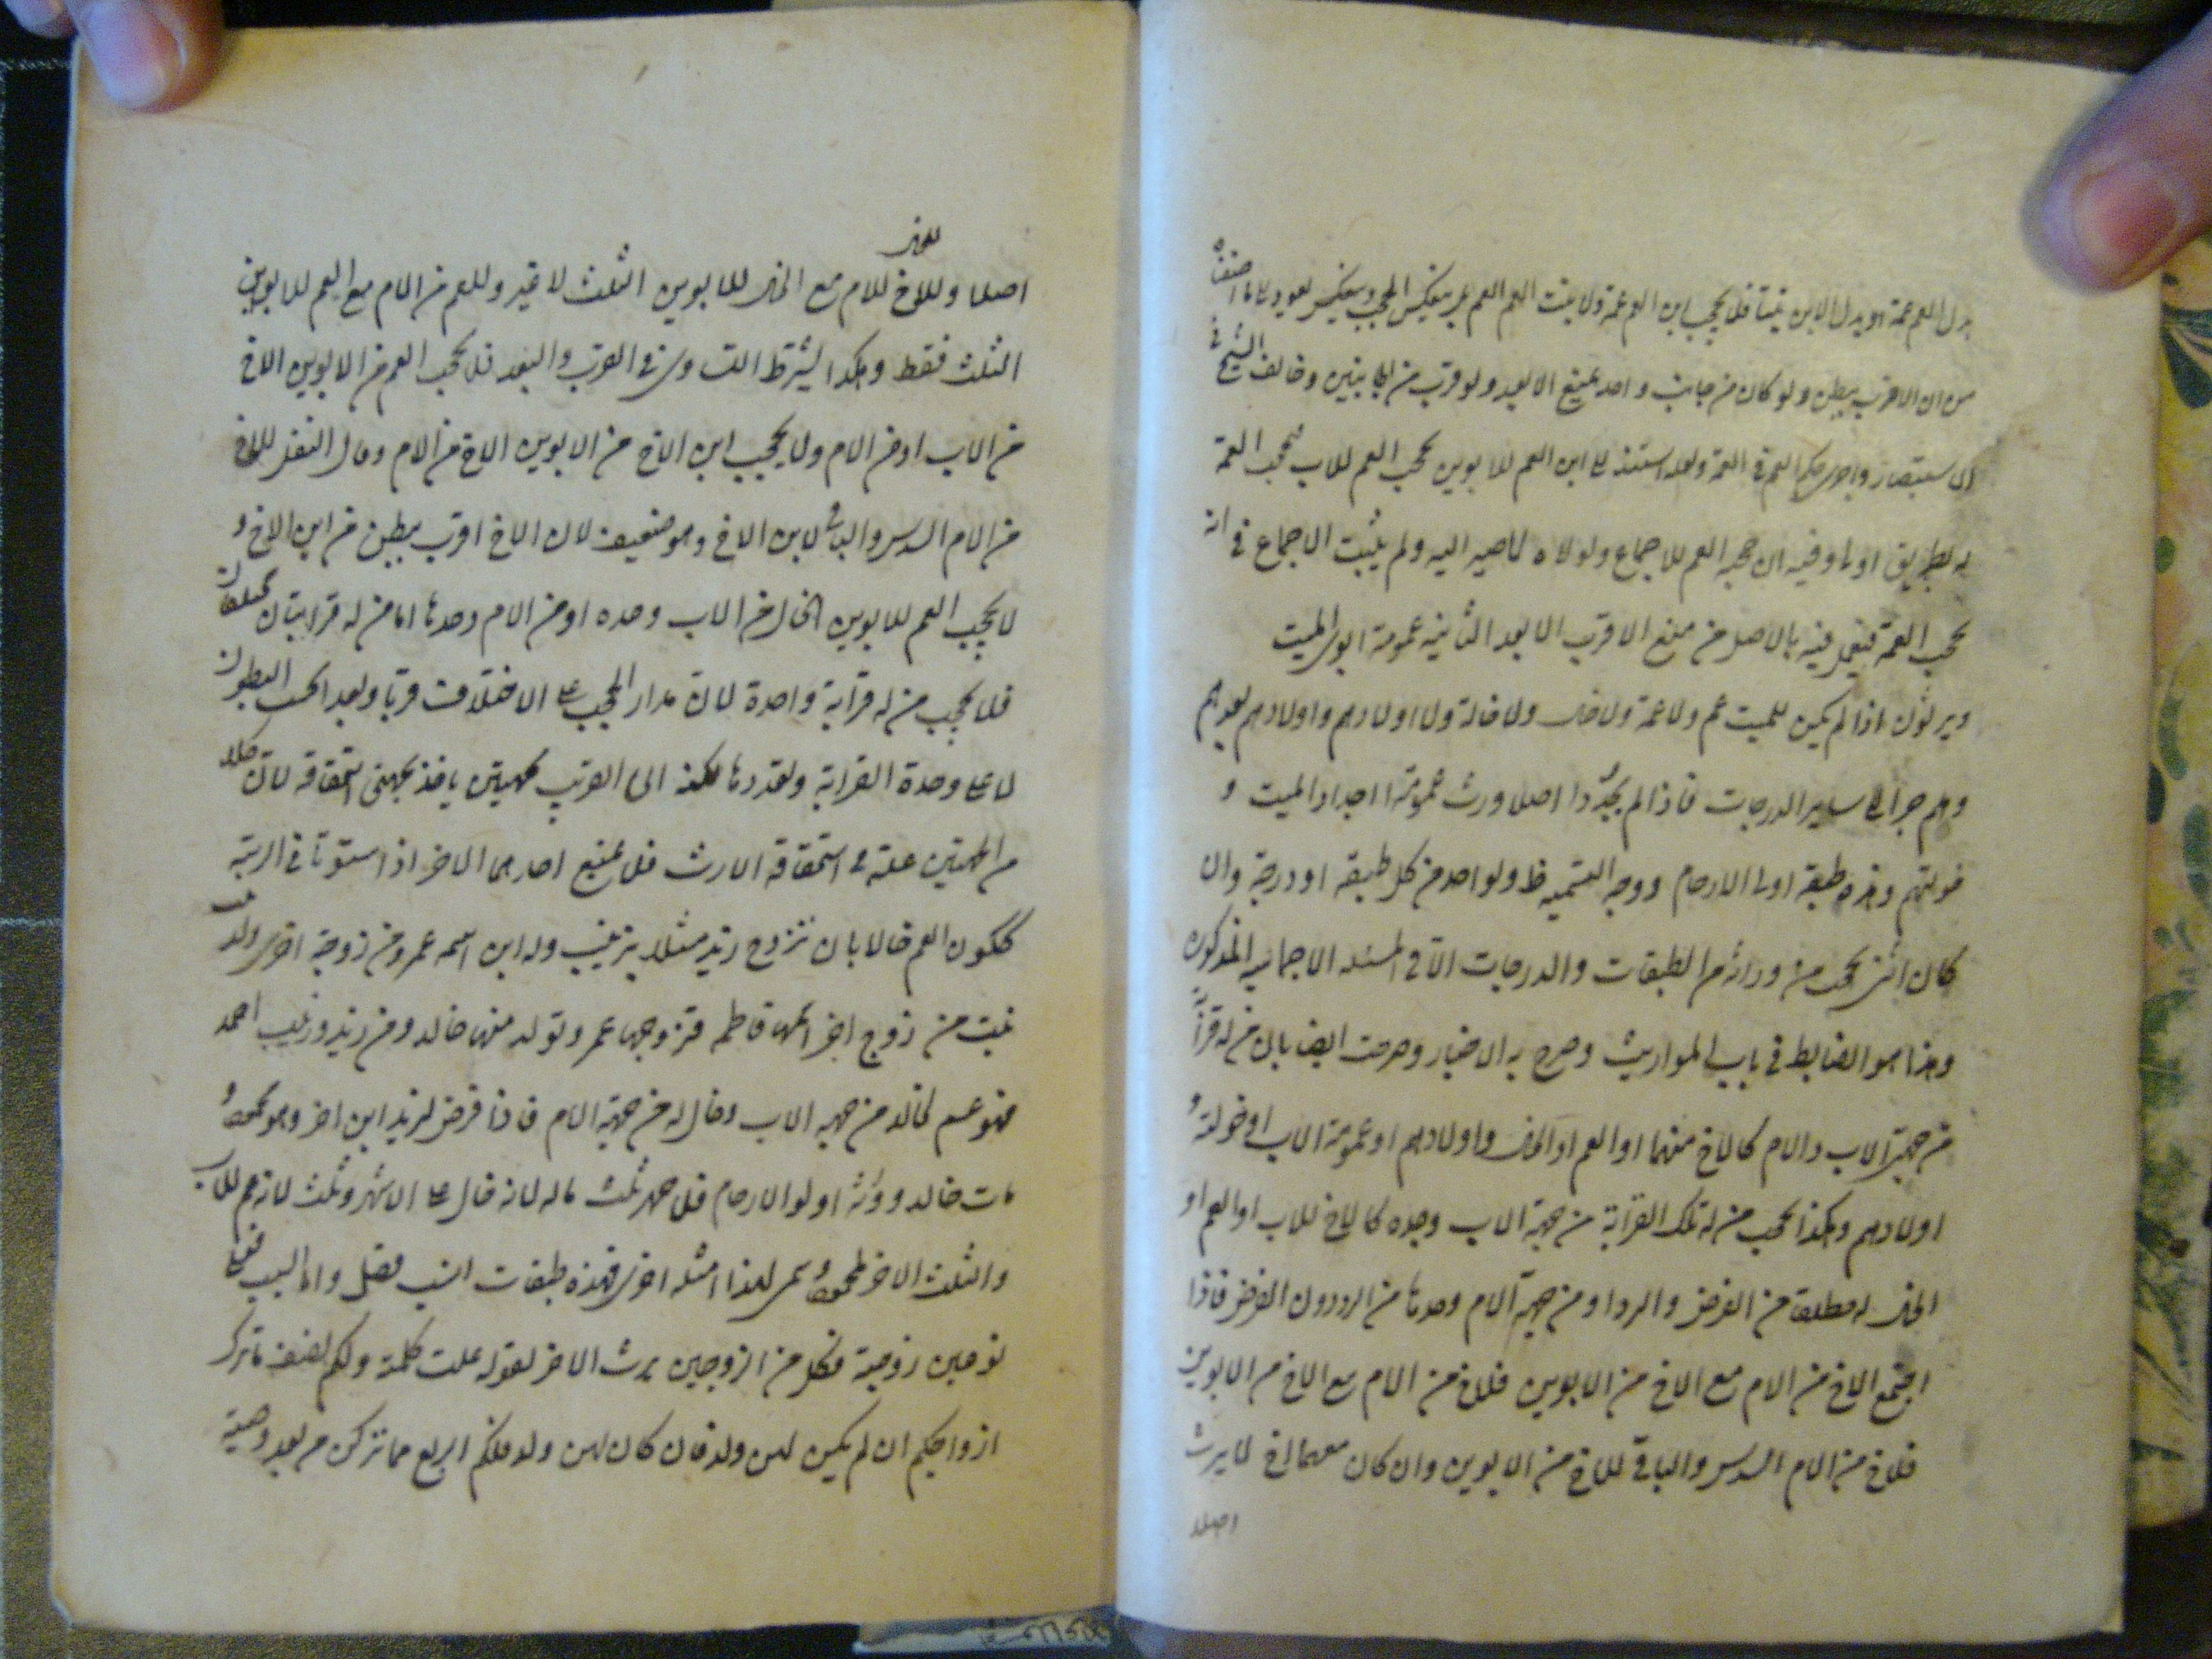 بدل العم عمة او بدل الابن بنتا فلا يحجب ابن العم عمة ولا بنت العم العم بل ينعكس الحجب وينعكس
من ان الاقرب ببطن ولو كان من جانب واحد يمنع الابعد ولو قرب من الجانبين وخالف الشيخ في
الاستبصار واجرى حكم العم في العمة ولعله استند الى ابن العم للابوين يحجب العم للاب فيحجب العمة
له بطريق اولى وفيه ان حجبه العم للاجماع ولولاه لما صير اليه ولم يثبت الاجماع في انه
يحجب العمة فيعمل فيه بالاصل من منع الاقرب الابعد الثانية عمومة ابوى الميت
ويرثون اذا لم يكن للميت عم ولا عمة ولا خال ولا خالة ولا اولادهم واولادهم بعدهم
وهلم جرا الى ساير الدرجات فاذا لم يجدوا اصلا ورث عمومة اجداد الميت و
خولتهم وهذه طبقة اولى الارحام ووجه التسمية ظ ولواحد من كل طبقة او درجة وان
كان انثى يحجب من ورائه من الطبقات والدرجات الا في المسئلة الاجماعية المذكورة
وهذا هو الضابط في باب المواريث وصرح به الاخيار وصرحت ايضا بان من له قرابة
من جهتى الاب والام كالاخ منهما او العم او الخال واولادهم او عمومة الاب او خولته و
اولادهم وهكذا يحجب من له تلك القرابة من جهة الاب وحده كالاخ للاب او العم او
الخال له مطلقا من الفرض والرد او من جهة الام وحدها من الرد دون الفرض فاذا
اجتمع الاخ من الام مع الاخ من الابوين فللاخ من الام مع الاخ من الابوين
فللاخ من الام السدس والباقي للاخ من الابوين وان كان معهما اخ لا يرث
اصلا
اصلا وللاخ للام مع الخال للابوين الثلث لا غير وللعم من الام مع العم للابوين
الثلث فقط وهكذا يشترط التساوى في القرب والبعد فلا يحجب العم من الابوين الاخ
من الاب او من الام ولا يحجب ابن الاخ من الابوين الاخ من الام وقال الفضل للاخ
من الام السدس والباقي لابن الاخ وهو ضعيف لان الاخ اقرب ببطن من ابن الاخ و
لا يحجب العم للابوين الخال من الاب وحده او من الام وحدها اما من له قرابتان
فلا يحجب من له قرابة واحدة لان مدار الحجب على الاختلاف قربا وبعدا بحسب البطون
لا على وحدة القرابة وتعددها لكنه اى القريب بجهتين ياخذ بجهتى استحقاقه لان كلا
من الجهتين علة في استحقاقه الارث فلا يمنع احديهما الاخر اذا استوتا في الرتبة
ككون العم خالا بان تزوج زيد مثلا بزينب وله ابن اسمه عمرو من زوجة اخرى ولها
بنت من زوج اخر اسمها فاطمه فتزوجها عمرو تولد منها خالد ومن زيد وزينب احمد
فهو عم لخالد من جهة الاب وخال له من جهة الام فاذا فرض لزيد ابن اخر وهو محمود و
مات خالد وورثه اولو الارحام فلاحمد ثلث ماله لانه خال على الاشهر وثلث لانه عم للاب
والثلث الاخر لمحمود وقس لهذا امثله اخرى فهذه طبقات النسب فصل واما السبب
نوعين زوجية فكل من الزوجين يرث الاخر لقوله علت كلمته ولكم نصف ما ترك
ازواجكم ان لم يكن لهن ولد فان كان لهن ولد فلكم الربع مما تركن من بعد وصية